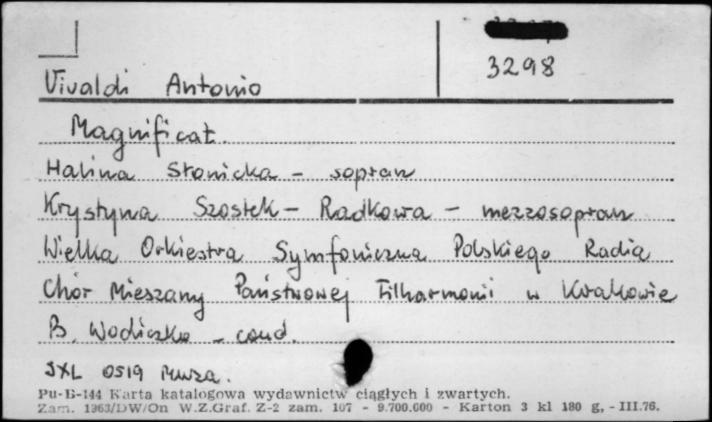 3298
Vivaldi Antonio
Magnificat.
Halina Słonicka - sopran
Krystyna Szostek - Radkowa - mezzosopran
Wielka Orkiestra Symfoniczna Polskiego Radia
Chór Mieszany Państwowej Filharmonii w Krakowie
B. Wodiczko - cond.
SXL 0519 Muza.
Pu-B-144 Karta katalogowa wydawnictw ciągłych i zwartych.
Zam. 1963/DW/On W.Z.Graf. Z-2 zam. 107 - 9.700.000 - Karton 3 kl 180 g, - III.76.